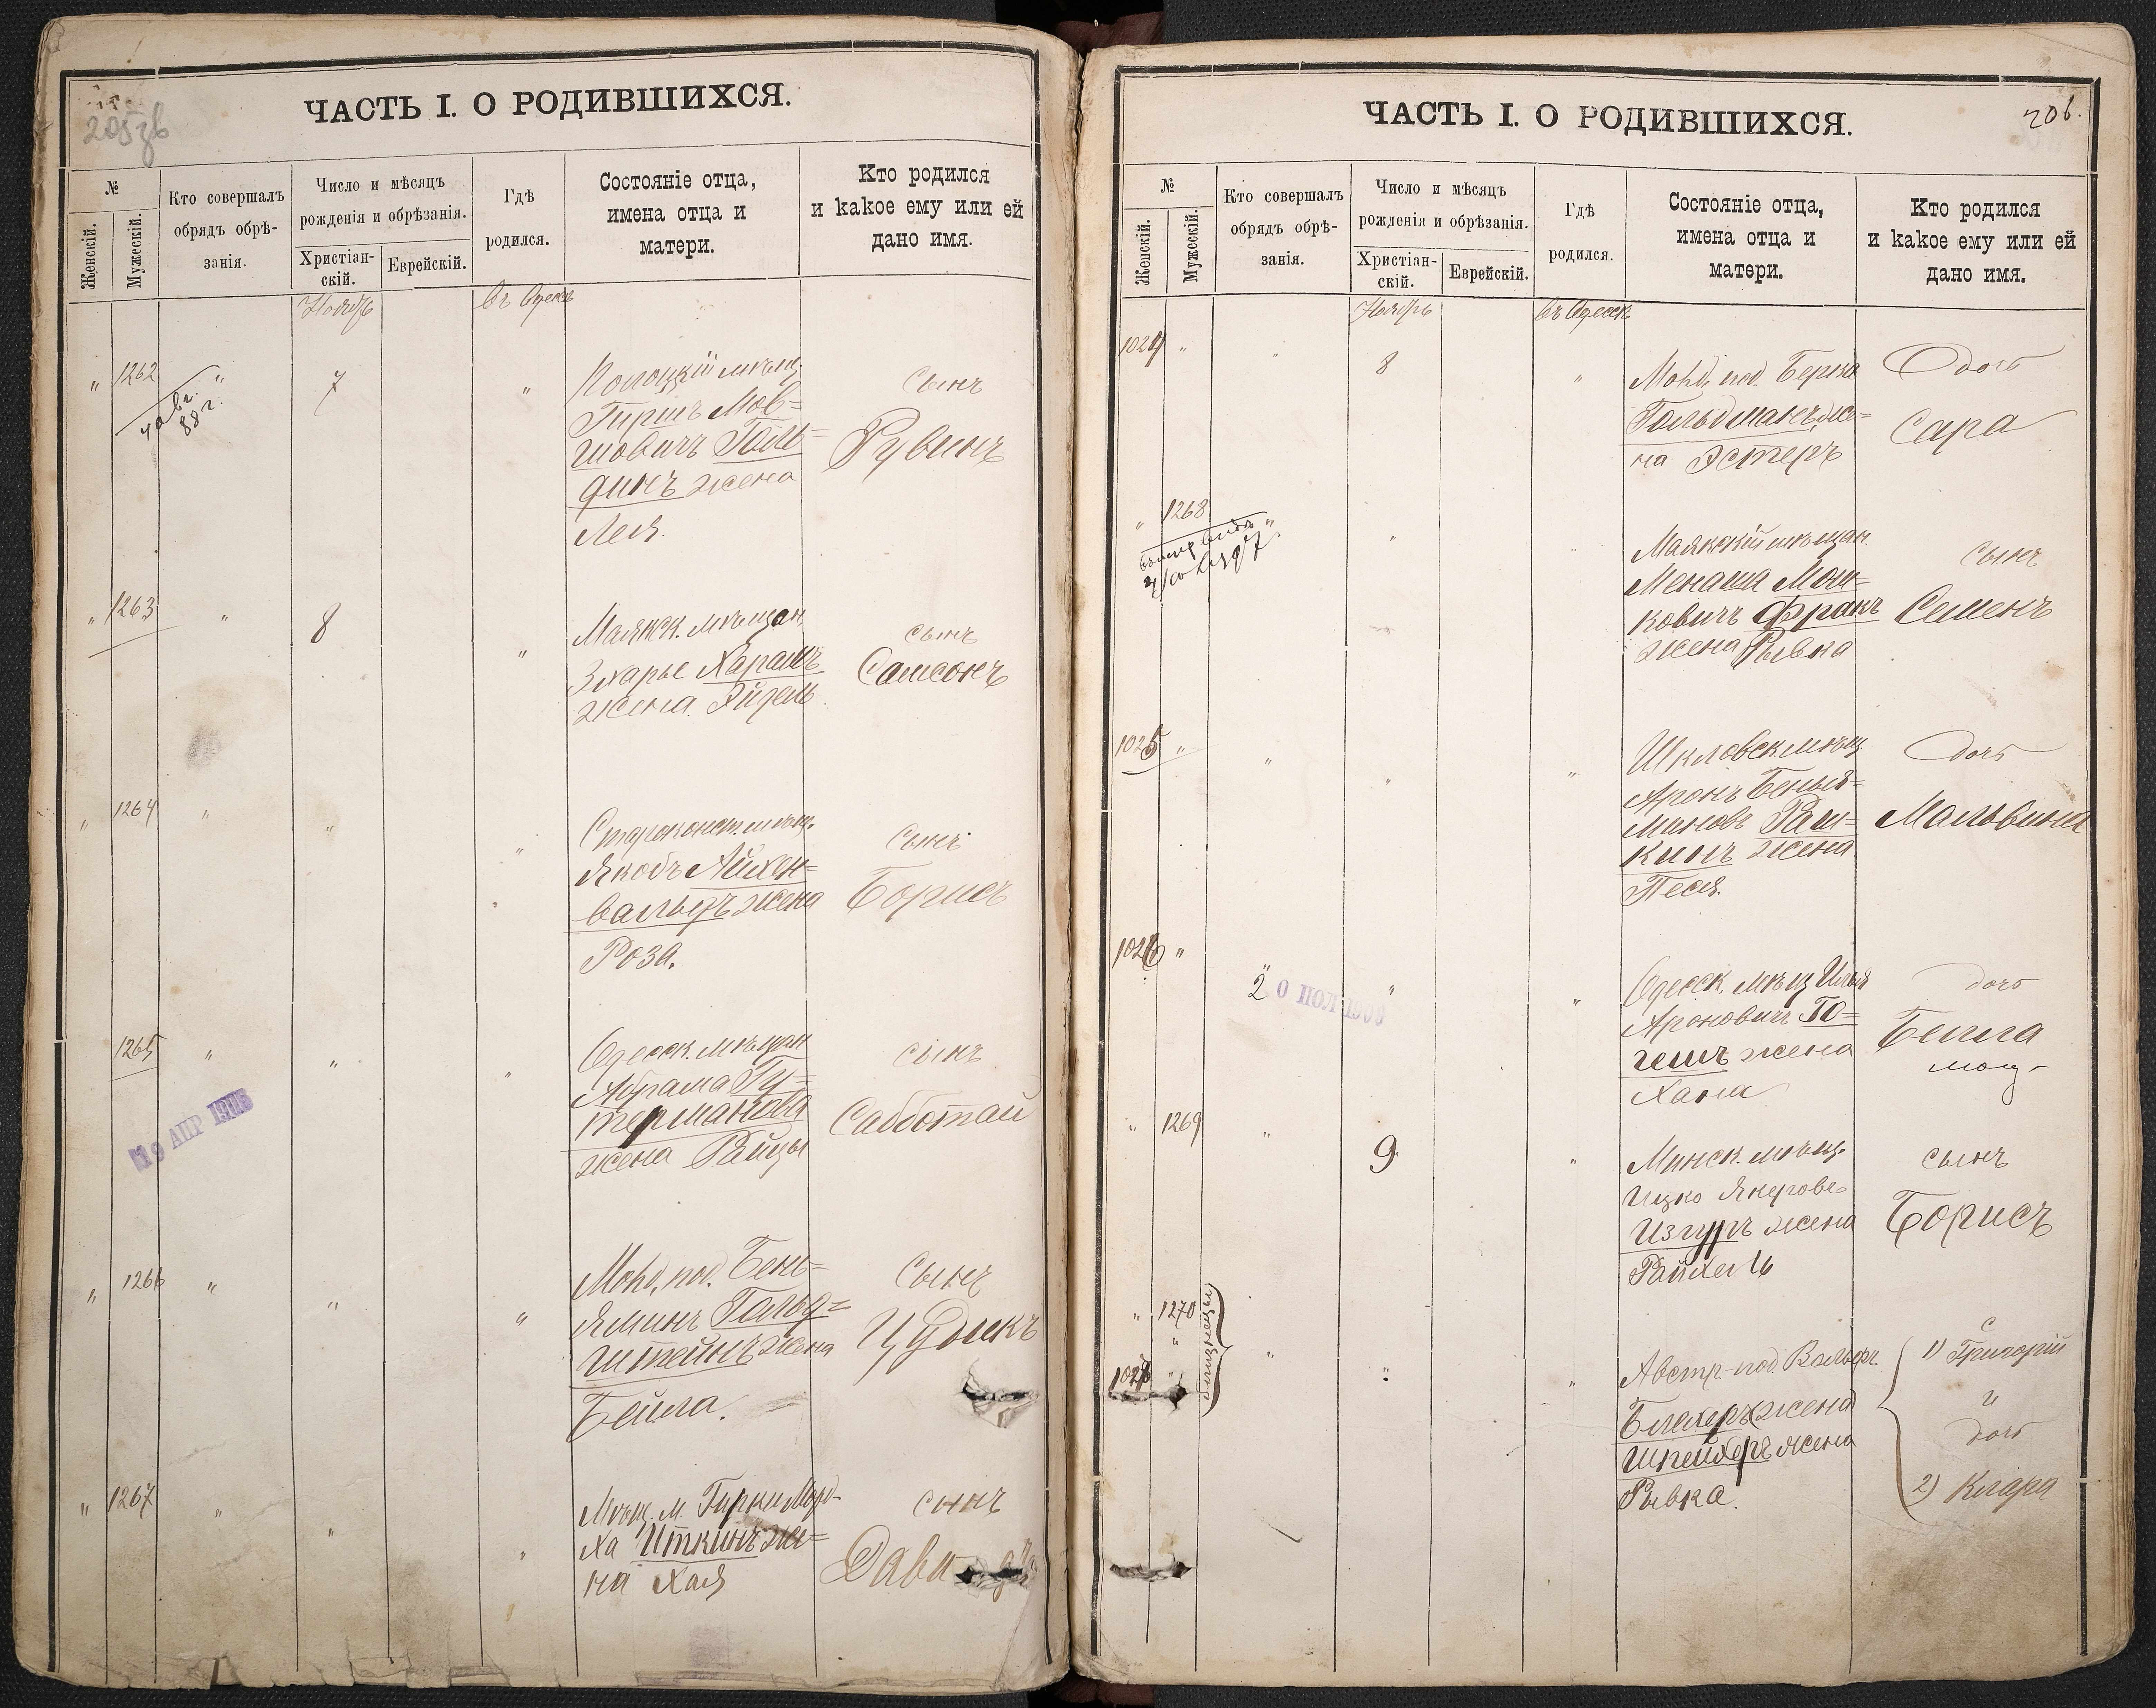 205
ЧАСТЬ I. О РОДИВШИХСЯ.
№
Женскій.
Мужескій.
Кто совершалъ
обрядъ обрѣ-
занія.
Число и мѣсяцъ
рожденія и обрѣзанія.
Христіан-
скій.
Еврейскій.
Гдѣ
родился.
Состояніе отца,
имена отца и
матери.
Кто родился
и какое ему или ей
дано имя.
Ноябрь
Въ Одессѣ
" 1262 " 7 "
88 г.
Полоцкій мѣщ.
Гиршъ Мов=
шовичъ Голь=
динъ жена
Лея.
Сынъ
Рувинъ
" 1263 " 8 "
Маякск. мѣщан.
Зхарье Харашъ
жена Эйдель
сынъ
Самсонъ
" 1264 " " "
Староконст. мѣщ.
Якобъ Айхен=
вальдъ жена
Роза.
Сынъ
Борисъ
1265 " " "
19 АПР 1906
Одесск. мѣщан
Абрама Гу=
терманова
жена Райцы
сынъ
Сабботай
" 1266 " " "
Молд. под. Бень=
яминъ Гольд=
штейнъ жена
Бейла.
Сынъ
Цудикъ
" 1267 " " "
Мѣщ. м. ГиркиМорд-
ха Иткинъ же=
на Хая
сынъ
Давидъ
206.
ЧАСТЬ I. О РОДИВШИХСЯ.
№
Женскій.
Мужескій.
Кто совершалъ
обрядъ обрѣ-
занія.
Число и мѣсяцъ
рожденія и обрѣзанія.
Христіан-
скій.
Еврейскій.
Гдѣ
родился.
Состояніе отца,
имена отца и
матери.
Кто родился
и какое ему или ей
дано имя.
Ноябрь
Въ Одессѣ
1024 " " 8 "
Молд. под. Берка
Гольдманъ же=
на Эстеръ
Дочь
Сара
" 1268 " " "
Маякскій мѣщан.
Менаша Мош=
ковичъ Фракъ
жена Рывка
сынъ
Семенъ
1025 " " " "
Шкловск. мѣщ
Аронъ Бенья=
миновъ Раш=
кинъ жена
Песя.
Дочь
Мальвина
1026 " " " "
2 0 НОЯ 1909
Одесск. мѣщ Илья
Ароновичъ Го=
гешъ жена
Хана
дочь
Бейла
" 1269 " 9 "
Минск. мѣщ.
Ицко Якеровъ
Изгуръ жена
Райхель
сынъ
Борисъ
" 1270
1027 "
близнецы
" " "
Австр-под. Вольфъ
Блехеръ жена
Шпейхеръ жена
Рывка.
с
1) Григорій
и
дочь
2) Клара